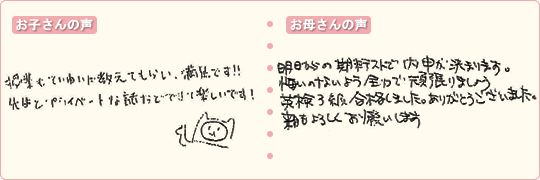 お子さんの声
授業もていねいに教えてもらい、満足です!!
先生とプライベートな話などできて楽しいです!
お母さんの声
明日からの期末テストで内申が決まります。
悔いのないよう全力で頑張りましょう
英検3級合格しました。ありがとうございました。
親もよろしくお願いします